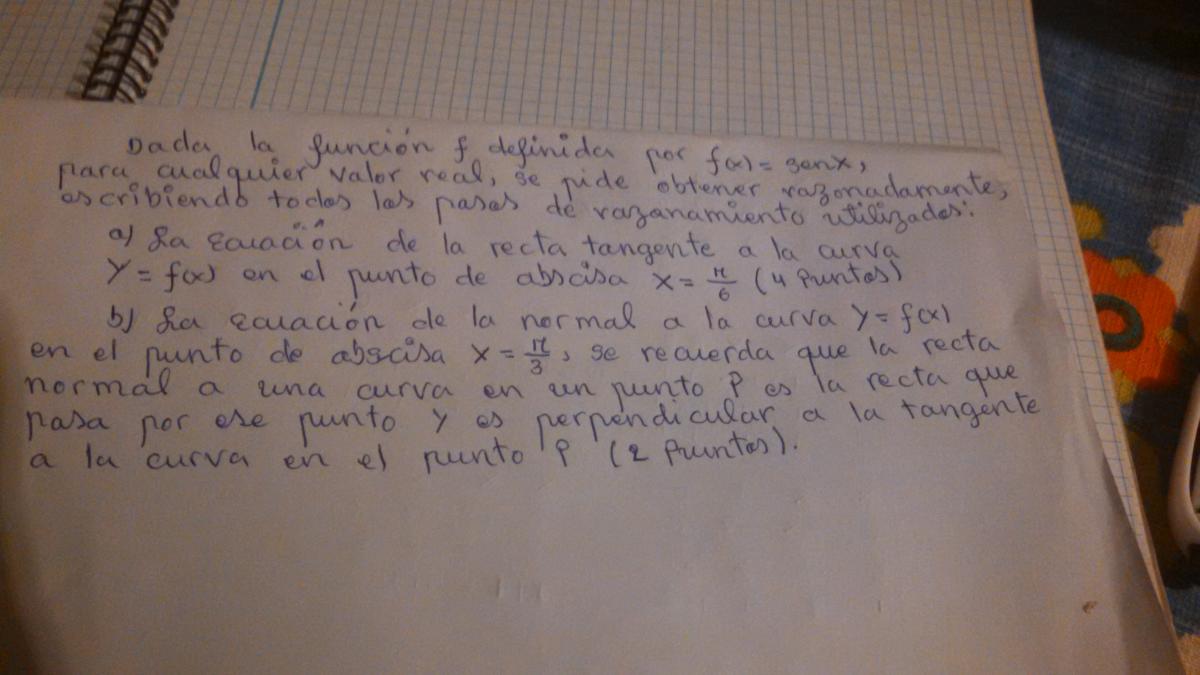 Dada la función f definida por f(x) = senx,
para cualquier valor real, se pide obtener razonadamente,
escribiendo todos los pasos de razonamiento utilizados:
a) La Ecuación de la recta tangente a la curva
Y = f(x) en el punto de abscisa x = π/6 (4 Puntos)
b) La ecuación de la normal a la curva Y = f(x)
en el punto de abscisa x = π/3, se recuerda que la recta
normal a una curva en un punto P es la recta que
pasa por ese punto Y es perpendicular a la tangente
a la curva en el punto P (2 Puntos).